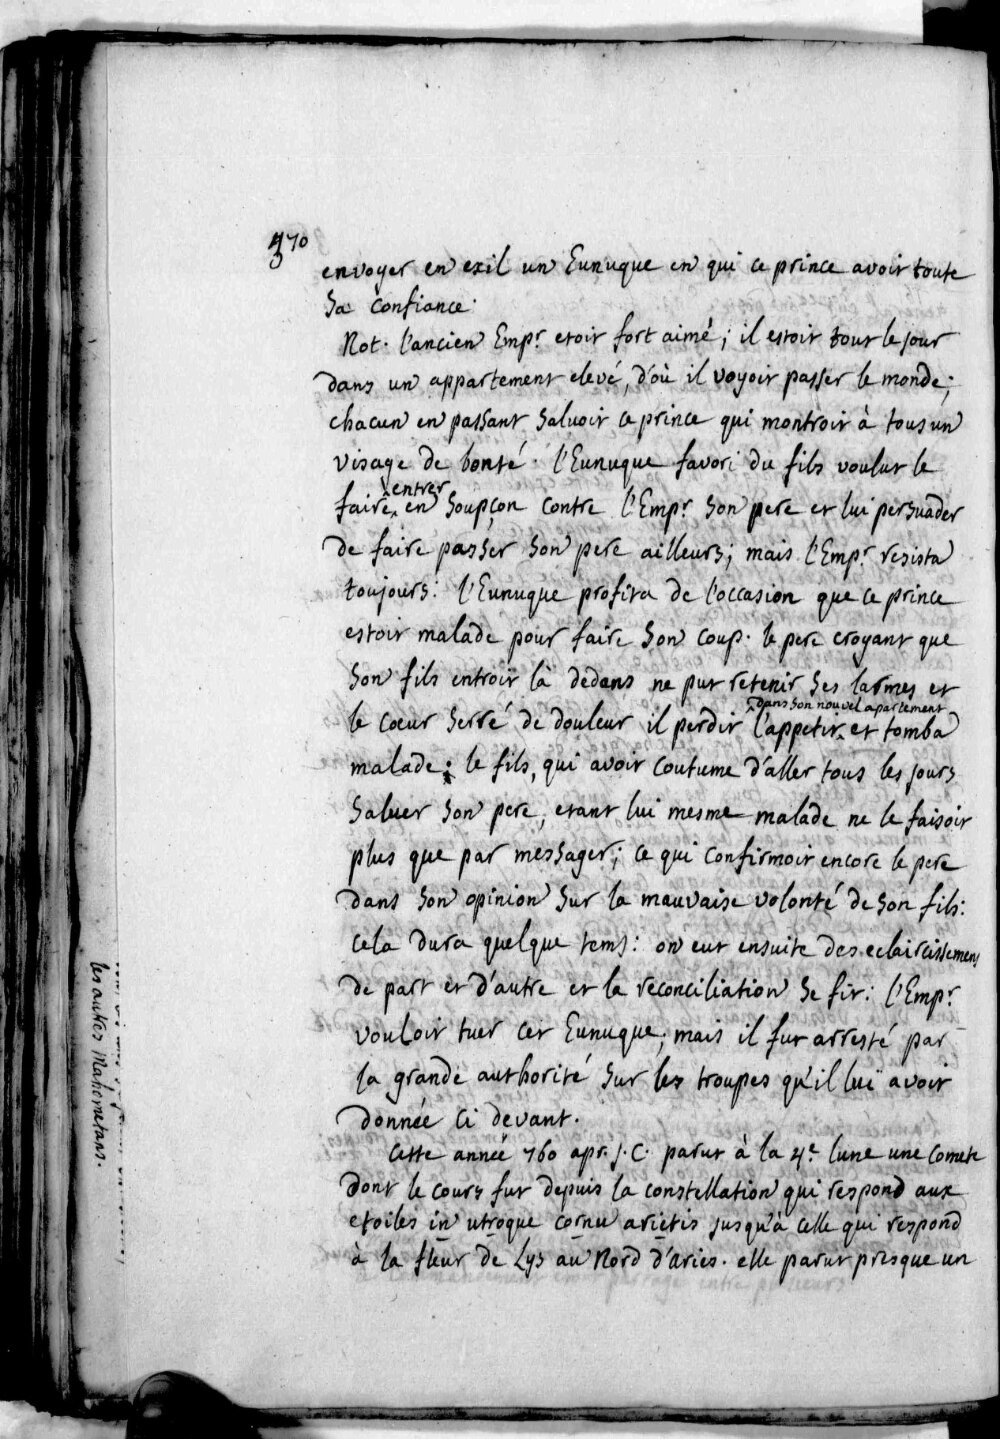 370
envoyer en exil un Eunuque en qui ce prince avoit toute
sa confiance.
Not. l'ancien Empr. etoit fort aimé; il estoit tout le jour
dans un appartement elevé, d'où il voyoit passer le monde;
chacun en passant saluoit ce prince qui montroit à tous un
visage de bonté. l'Eunuque favori du fils voulut le
faire entrer en soupçon contre l'Empr. son pere et lui persuader
de faire passer son pere ailleurs; mais l'Empr. resista
toujours: l'Eunuque profita de l'occasion que ce prince
estoit malade pour faire son coup. le pere croyant que
son fils entroit là dedans ne put retenir ses larmes et
le cœur serré de douleur il perdit dans son nouvel apartement l'appetit et tomba
malade: le fils, qui avoit coutume d'aller tous les jours
saluer son pere, etant lui mesme malade ne le faisoit
plus que par messager; ce qui confirmoit encore le pere
dans son opinion sur la mauvaise volonté de son fils:
cela dura quelque tems: on eut ensuite des eclaircissemens
de part et d'autre et la reconciliation se fit: l'Empr.
vouloit tuer cet Eunuque; mais il fut arresté par
la grande authorité sur les troupes qu'il lui avoit
donnée ci devant.
Cette année 760 apr. J. C. parut à la 4e. lune une comete
dont le cours fut depuis la constellation qui respond aux
etoiles in utroque cornu arietis jusqu'à celle qui respond
à la fleur de Lys au Nord d'aries. elle parut presque un
les autres Mahometans.